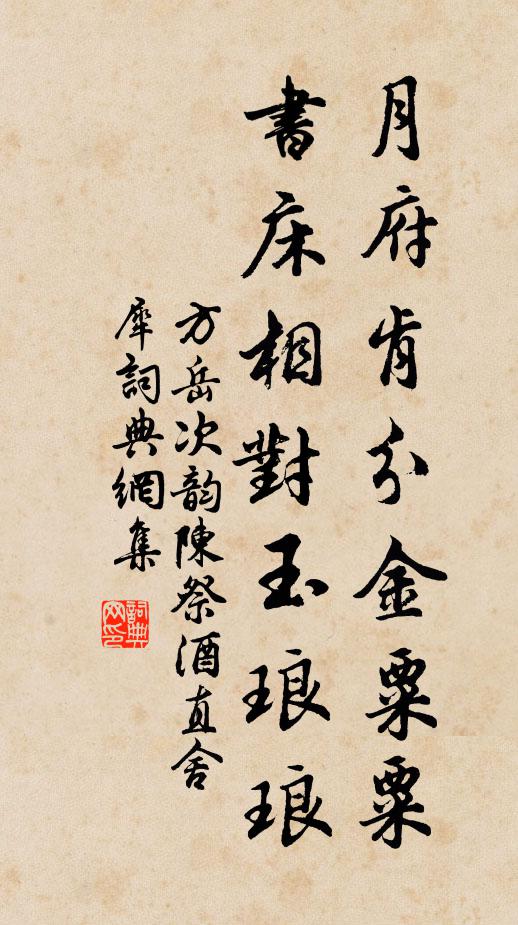 月府肯分金粟粟
書床相對玉琅琅
方岳次韵陳祭酒直舍
犀詞典網集
詞典網印